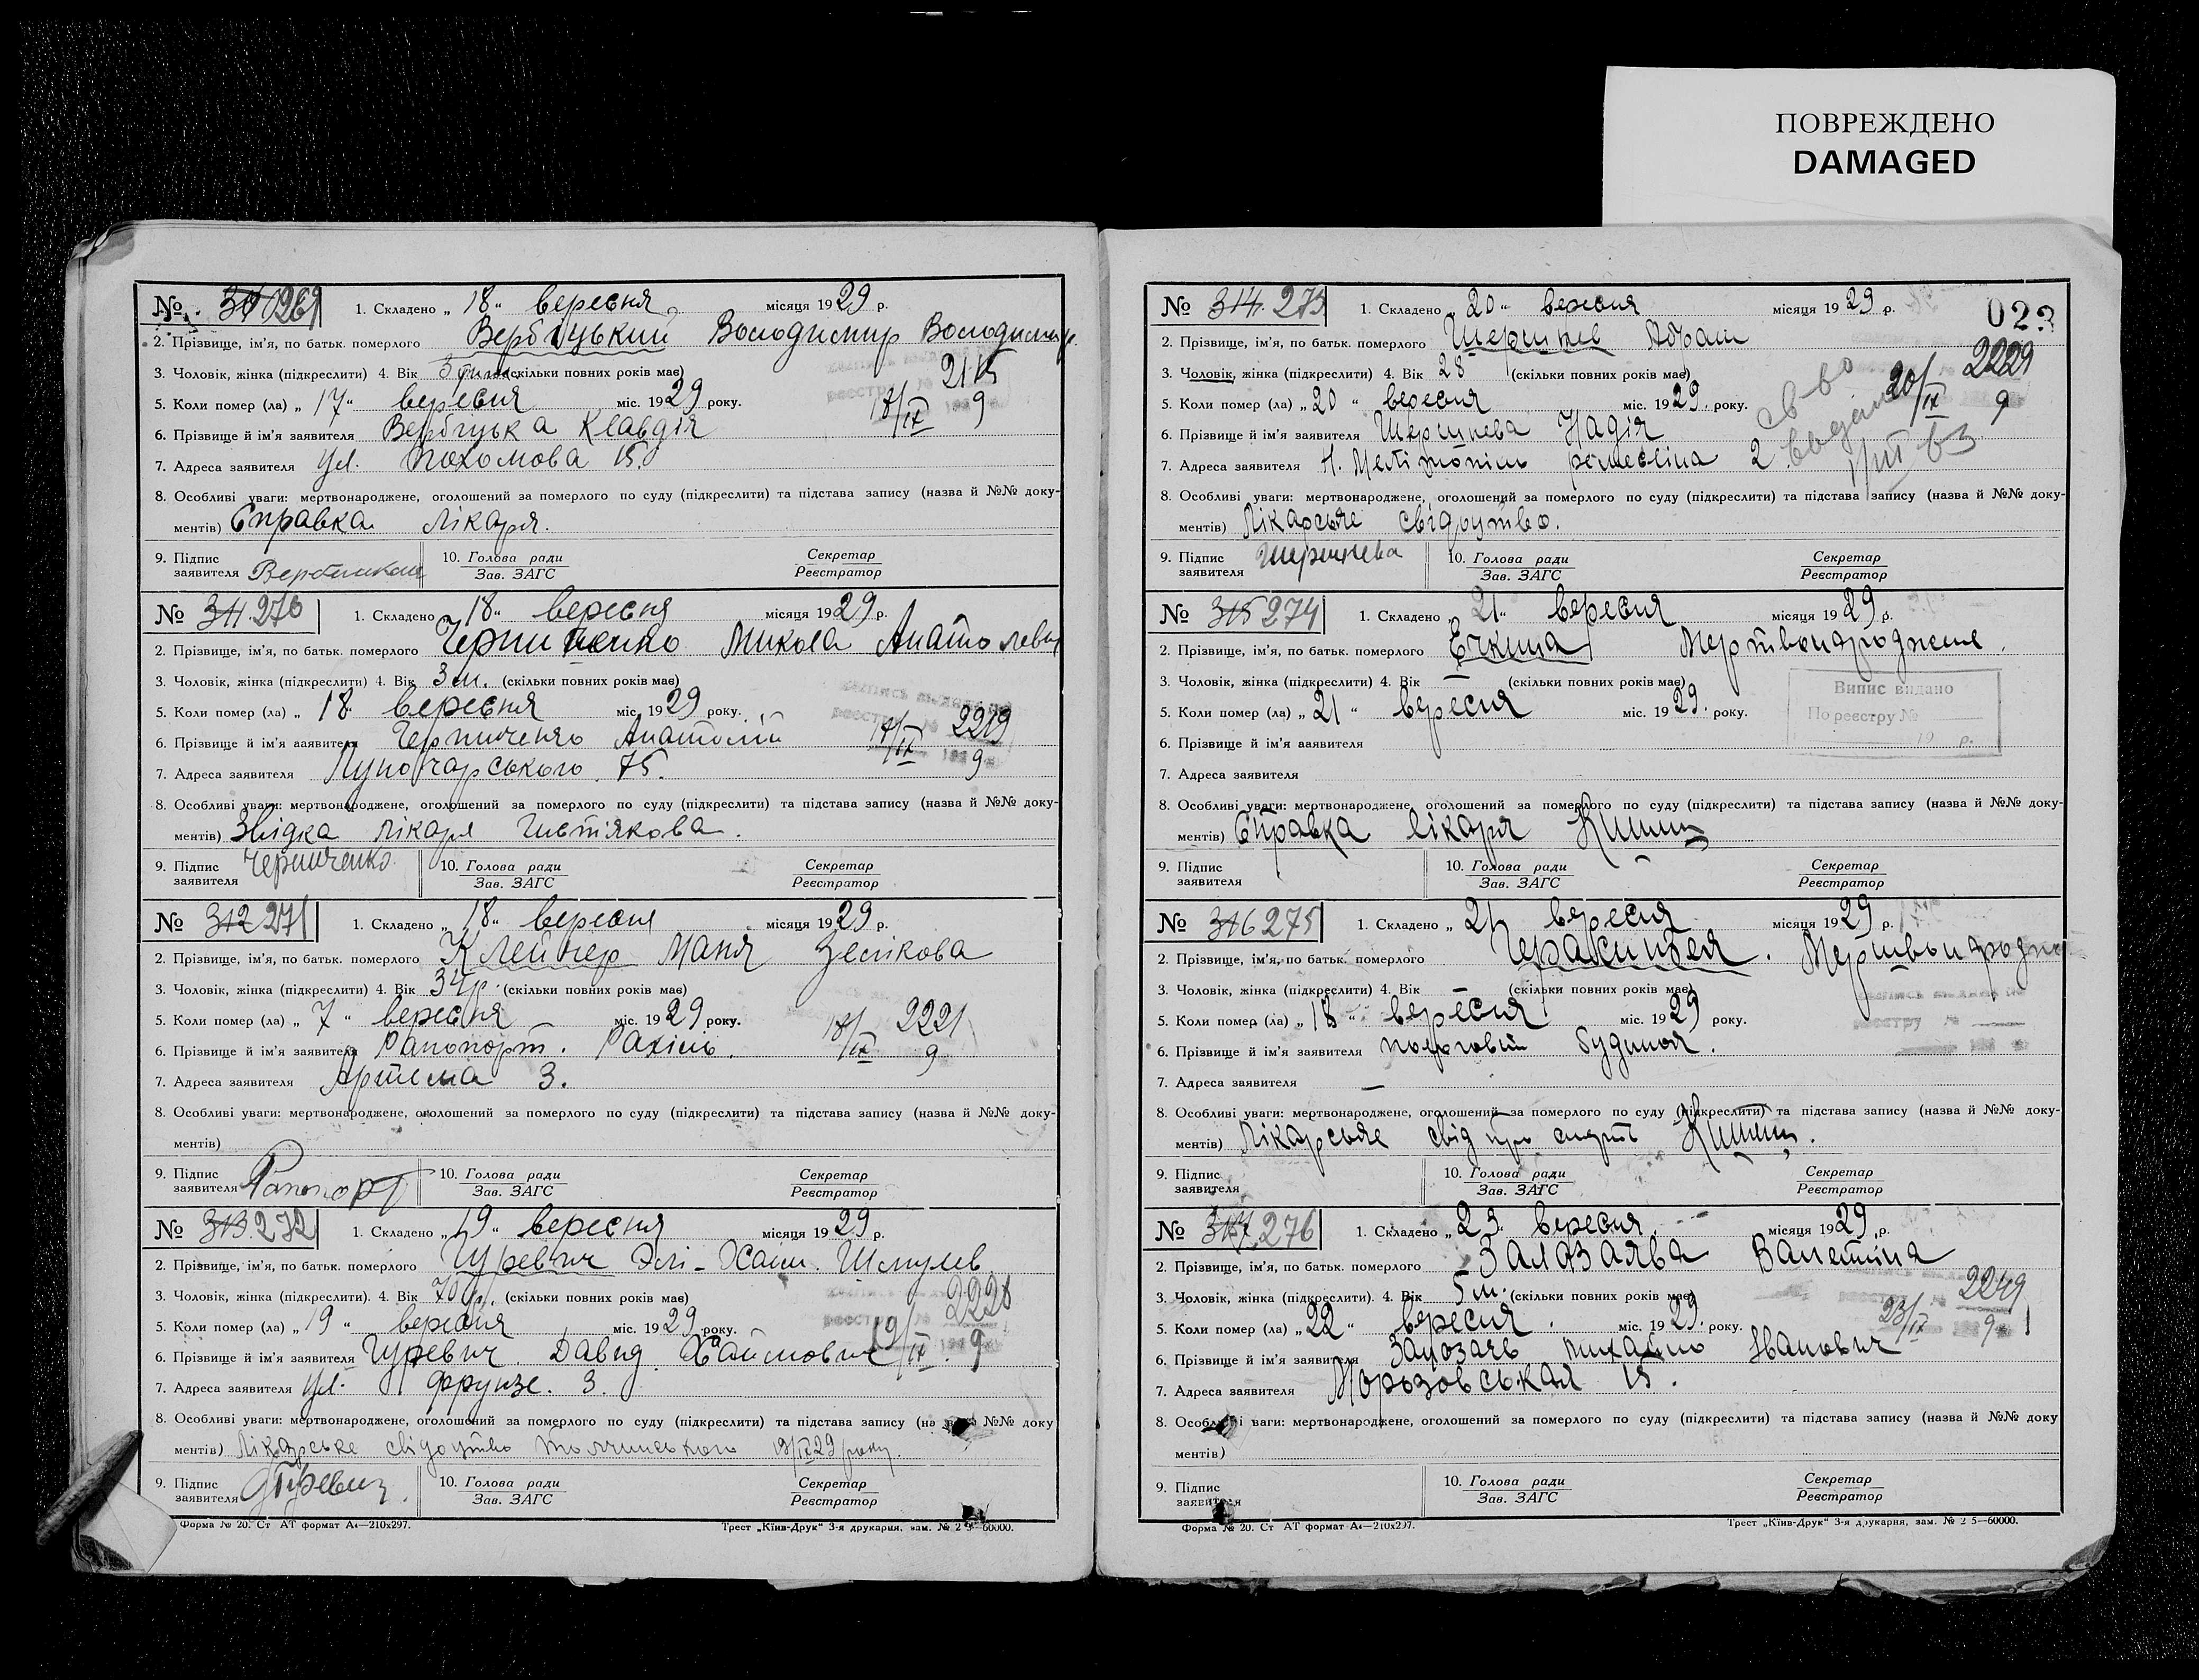 ПОВРЕЖДЕНО
DAMAGED
№ 310 269 1. Складено „ 18 “ вересня місяця 1929 р.
2. Прізвище, ім'я, по батьк. померлого Вербіцький Володимир Володимир.
3. Чоловік, жінка (підкреслити) 4. Вік (скільки повних років має)
5. Коли помер (ла) „ 17 “ вересня міс. 1929 року. 17/IX 9
6. Прізвище й ім'я заявителя Вербіцька Клавдія
7. Адреса заявителя Ул. Пахомова 15.
8. Особливі уваги: мертвонароджене, оголошений за померлого по суду (підкреслити) та підстава запису (назва й №№ доку-
ментів) Справка лікаря.
9. Підпис заявителя 10. Голова ради Секретар
Зав. ЗАГС Реєстратор
№ 311. 270 1. Складено „ 18 “ вересня місяця 1929 р.
2. Прізвище, ім'я, по батьк. померлого Черниченко Микола Анатолевич
3. Чоловік, жінка (підкреслити) 4. Вік 3 м. (скільки повних років має)
5. Коли помер (ла) „ 18 “ вересня міс. 1929 року.
6. Прізвище й ім'я заявителя Черниченко Анатолій 2219 9
7. Адреса заявителя Луночарського 75.
8. Особливі уваги: мертвонароджене, оголошений за померлого по суду (підкреслити) та підстава запису (назва й №№ доку-
ментів) Звідка лікаря Чистякова.
9. Підпис заявителя Черниченко 10. Голова ради Секретар
Зав. ЗАГС Реєстратор
№ 312 271 1. Складено „ 18 “ вересня місяця 1929 р.
2. Прізвище, ім'я, по батьк. померлого Клейнер Маня Зелікова
3. Чоловік, жінка (підкреслити) 4. Вік 34 р. (скільки повних років має)
5. Коли помер (ла) „ 7 “ вересня міс. 1929 року. 2221
6. Прізвище й ім'я заявителя Рапопорт. Рахіль. 9
7. Адреса заявителя Артема 3.
8. Особливі уваги: мертвонароджене, оголошений за померлого по суду (підкреслити) та підстава запису (назва й №№ доку-
ментів)
9. Підпис заявителя Рапопорт 10. Голова ради Секретар
Зав. ЗАГС Реєстратор
№ 313. 272 1. Складено „ 19 “ вересня місяця 1929 р.
2. Прізвище, ім'я, по батьк. померлого Гуревич Элі-Хаим. Шмулев
3. Чоловік, жінка (підкреслити). 4. Вік 70 р. (скільки повних років має) 2228
5. Коли помер (ла) „ 19 “ вересня міс. 1929 року. 19/IX. 9
6. Прізвище й ім'я заявителя Гуревич. Давид. Хаймович
7. Адреса заявителя Ул. Фрунзе. 3.
8. Особливі уваги: мертвонароджене, оголошений за померлого по суду (підкреслити) та підстава запису №№ доку
ментів) Лікарське свідоцтво 19/IX 29 року.
9. Підпис заявителя Гуревич. 10. Голова ради Секретар
Зав. ЗАГС Реєстратор
Форма № 20. Ст АТ формат А4—210х297. Трест „Київ-Друк“ 3-я друкарня, зам. № 60000.
023
№ 314. 273 1. Складено „ 20 “ вересня місяця 1929 р.
2. Прізвище, ім'я, по батьк. померлого Шершнев
3. Чоловік, жінка (підкреслити) 4. Вік 28 (скільки повних років має) 2229
5. Коли помер (ла) „ 20 “ вересня міс. 1929. року. 20/IX 9
6. Прізвище й ім'я заявителя Шершнева Надія
7. Адреса заявителя Н. Мелітопіль ремесліна 2
св-во
8. Особливі уваги: мертвонароджене, оголошений за померлого по суду (підкреслити) та підстава запису (назва й №№ доку-
ментів) Лікарське свідоцтво.
9. Підпис заявителя Шершнева 10. Голова ради Секретар
Зав. ЗАГС Реєстратор
№ 315 274 1. Складено „ 21 “ вересня місяця 1929 р.
2. Прізвище, ім'я, по батьк. померлого Ечкина Мертвонароджене.
3. Чоловік, жінка (підкреслити) 4. Вік — (скільки повних років має)
Випис видано
По реєстру №
19 р.
5. Коли помер (ла) „ 21 “ вересня міс. 1929. року.
6. Прізвище й ім'я заявителя
7. Адреса заявителя
8. Особливі уваги: мертвонароджене, оголошений за померлого по суду (підкреслити) та підстава запису (назва й №№ доку-
ментів) Справка лікаря
9. Підпис заявителя 10. Голова ради Секретар
Зав. ЗАГС Реєстратор
№ 316 275 1. Складено „ 21 вересня місяця 1929 р.
2. Прізвище, ім'я, по батьк. померлого
3. Чоловік, жінка (підкреслити) 4. Вік — (скільки повних років має)
5. Коли помер (ла) „ 18 “ вересня міс. 1929 року.
6. Прізвище й ім'я заявителя пологовий будинок.
7. Адреса заявителя —
8. Особливі уваги: мертвонароджене, оголошений за померлого по суду (підкреслити) та підстава запису (назва й №№ доку-
ментів) Лікарське свід про смерть
9. Підпис заявителя 10. Голова ради Секретар
Зав. ЗАГС Реєстратор
№ 317. 276 1. Складено „ 23 “ вересня місяця 1929. р.
2. Прізвище, ім'я, по батьк. померлого Валентина
3. Чоловік, жінка (підкреслити). 4. Вік 5 м. (скільки повних років має) 2249
5. Коли помер (ла) „ 22 “ вересня. міс. 1929. року. 23/IX 9
6. Прізвище й ім'я заявителя Михайло Іванович
7. Адреса заявителя Морозовськая 15.
8. Особливі уваги: мертвонароджене, оголошений за померлого по суду (підкреслити) та підстава запису (назва й №№ доку
ментів)
9. Підпис заявителя 10. Голова ради Секретар
Зав. ЗАГС Реєстратор
Форма № 20. Ст АТ формат А4—210х297. Трест „Київ-Друк“ 3-я друкарня, зам. № 60000.